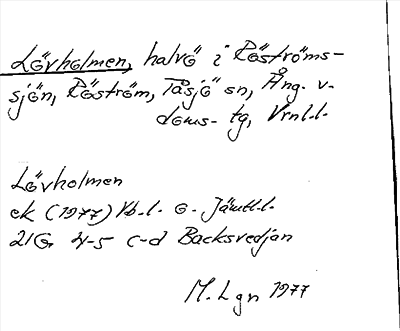 Lövholmen, halvö i Röströms-
sjön, Röström, Tåsjö sn, Ång. v.
doms. tg, Vrnl.l.
Lövholmen
ek (1977) Vb.l. o. Jämtl.l.
21G 4-5 c-d Backsvedjan
M. Lgn 1977